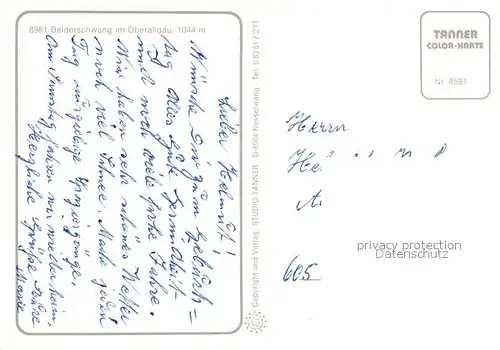 8981 Balderschwang im Oberallgäu, 1044 m
Lieber Helmut!
Wünsche Dir zum Geburts=
tag alles Gute Gesundheit
und noch viele frohe Jahre.
Wir haben sehr schönes Wetter
noch viel Schnee. Mache jeden
Tag ausgiebige Spaziergänge.
Am Samstag fahren wir wieder heim,
Herzliche Grüße
Marie
Copyright und Verlag: STUDIO TANNER D-8964 Nesselwang Tel. 08361/211
TANNER
COLOR-KARTE
Nr. 8581
Herrn
privacy protection
Datenschutz
605